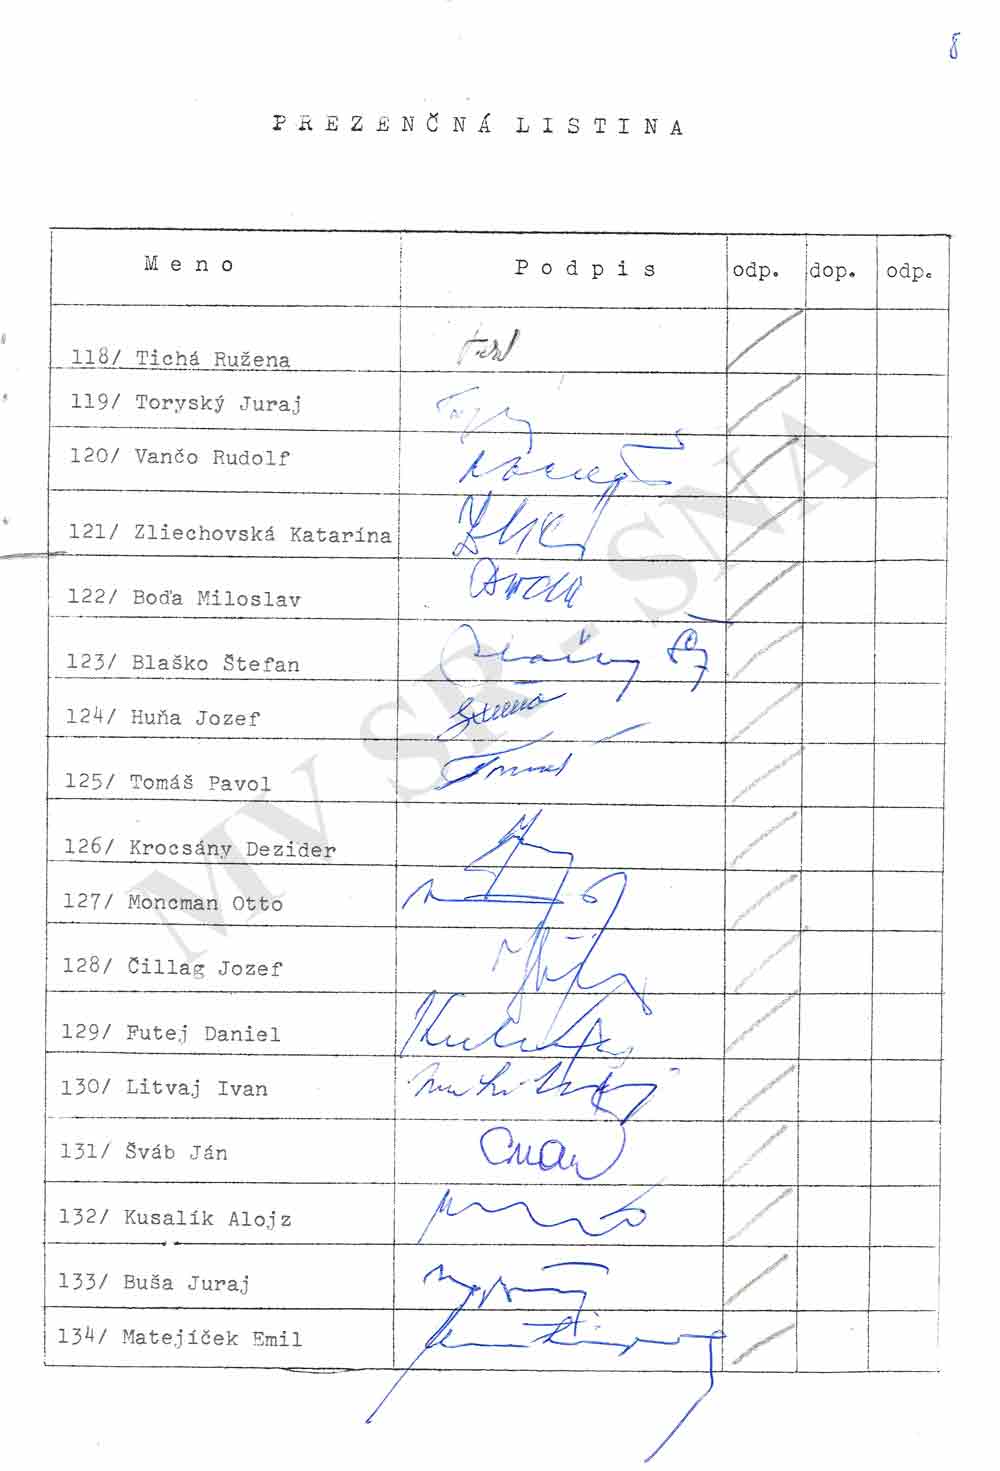 8
PREZENČNÁ LISTINA
Meno Podpis odp. dop. odp.
118/ Tichá Ružena
119/ Toryský Juraj
120/ Vančo Rudolf
121/ Zliechovská Katarína
122/ Boďa Miloslav
123/ Blaško Štefan
124/ Huňa Jozef
125/ Tomáš Pavol
126/ Krocsány Dezider
127/ Moncman Otto
128/ Čillag Jozef
129/ Futej Daniel
130/ Litvaj Ivan
131/ Šváb Ján
132/ Kusalík Alojz
133/ Buša Juraj
134/ Matejíček Emil
MV SR - SNA